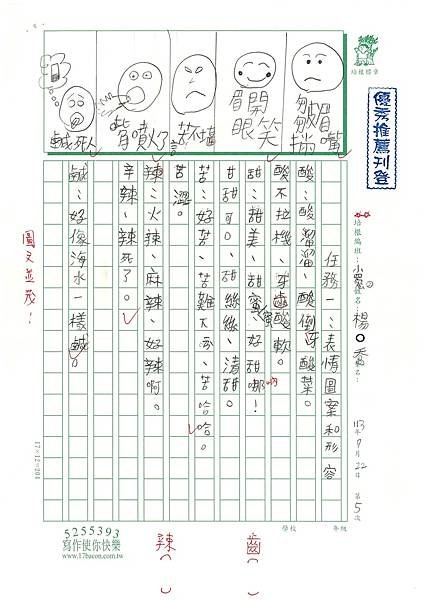 優秀推薦刊登
培根標章
培根編班：小 姓名：楊○ 名：
113年9月22日 第5次
皺眉
嘴
眉開
眼笑
苦不堪言
嘴噴火了
鹹死人
任務一：表情圖案和形容
酸：酸溜溜、酸倒牙、酸菜。
酸不拉機、牙齒酸軟。
甜：甜美、甜蜜蜜、好甜哪！
甘甜可口、甜絲絲、清甜。
苦：好苦、苦難大 、苦哈哈。
苦澀。
辣：火辣、麻辣、好辣啊。
辛辣、辣死了。
鹹：好像海水一樣鹹。
圖文並茂！
齒
辣
17×12=204
學校 年級
5255393
寫作使你快樂
www.17bacon.com.tw